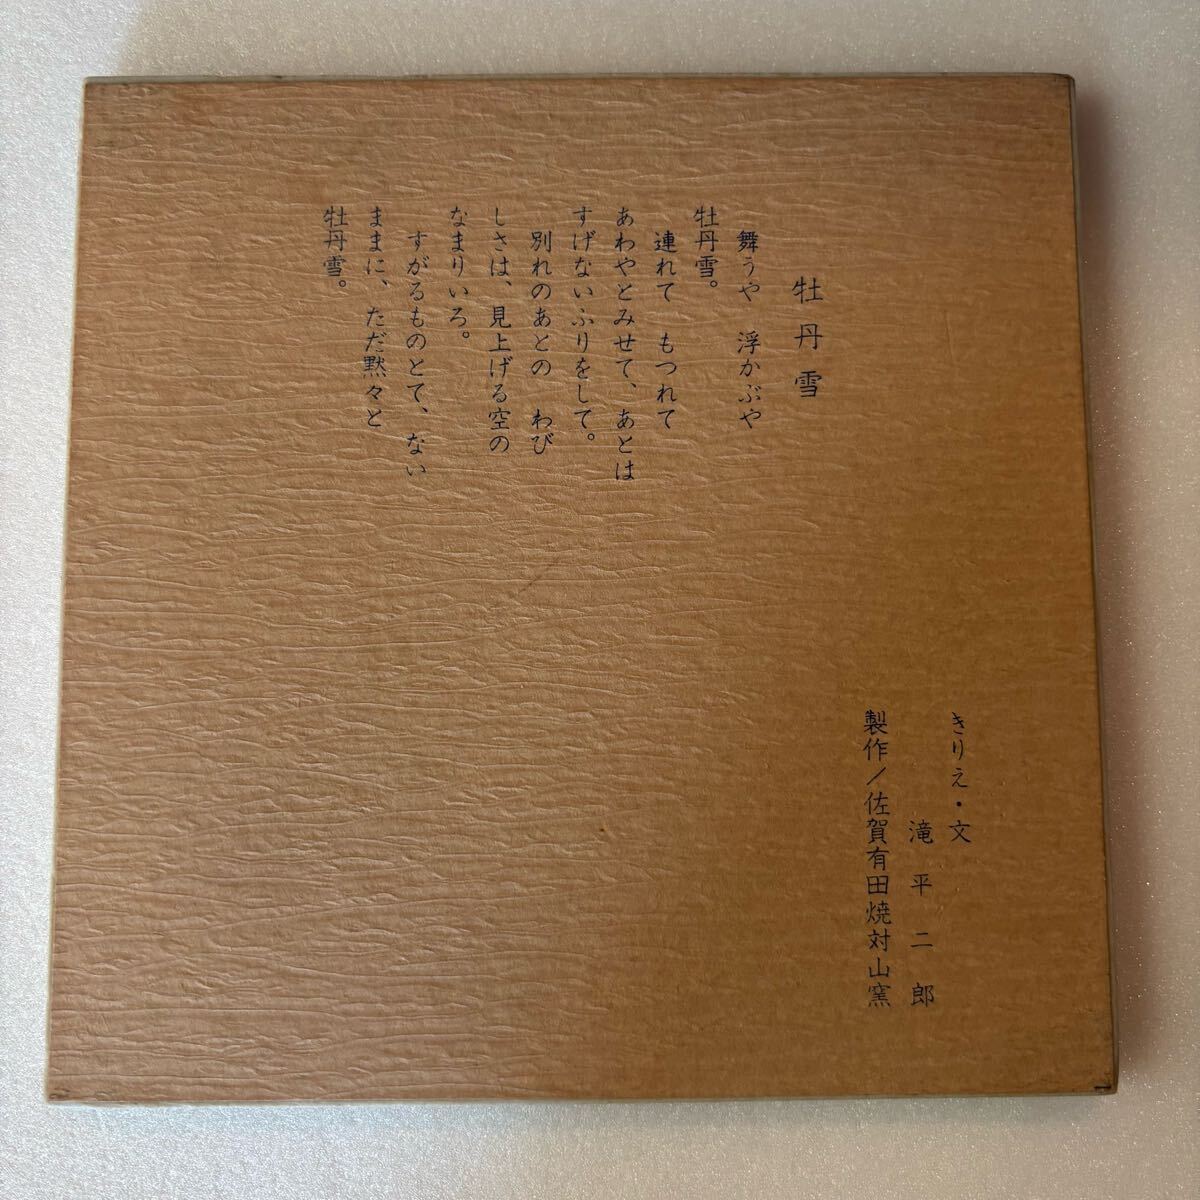 牡丹雪
舞うや　浮かぶや
牡丹雪。
連れて　もつれて
あわやとみせて、あとは
すげないふりをして。
別れのあとの　わび
しさは、見上げる空の
なまりいろ。
すがるものとて、ない
ままに、ただ黙々と
牡丹雪。
きりえ・文
滝平二郎
製作／佐賀有田焼対山窯